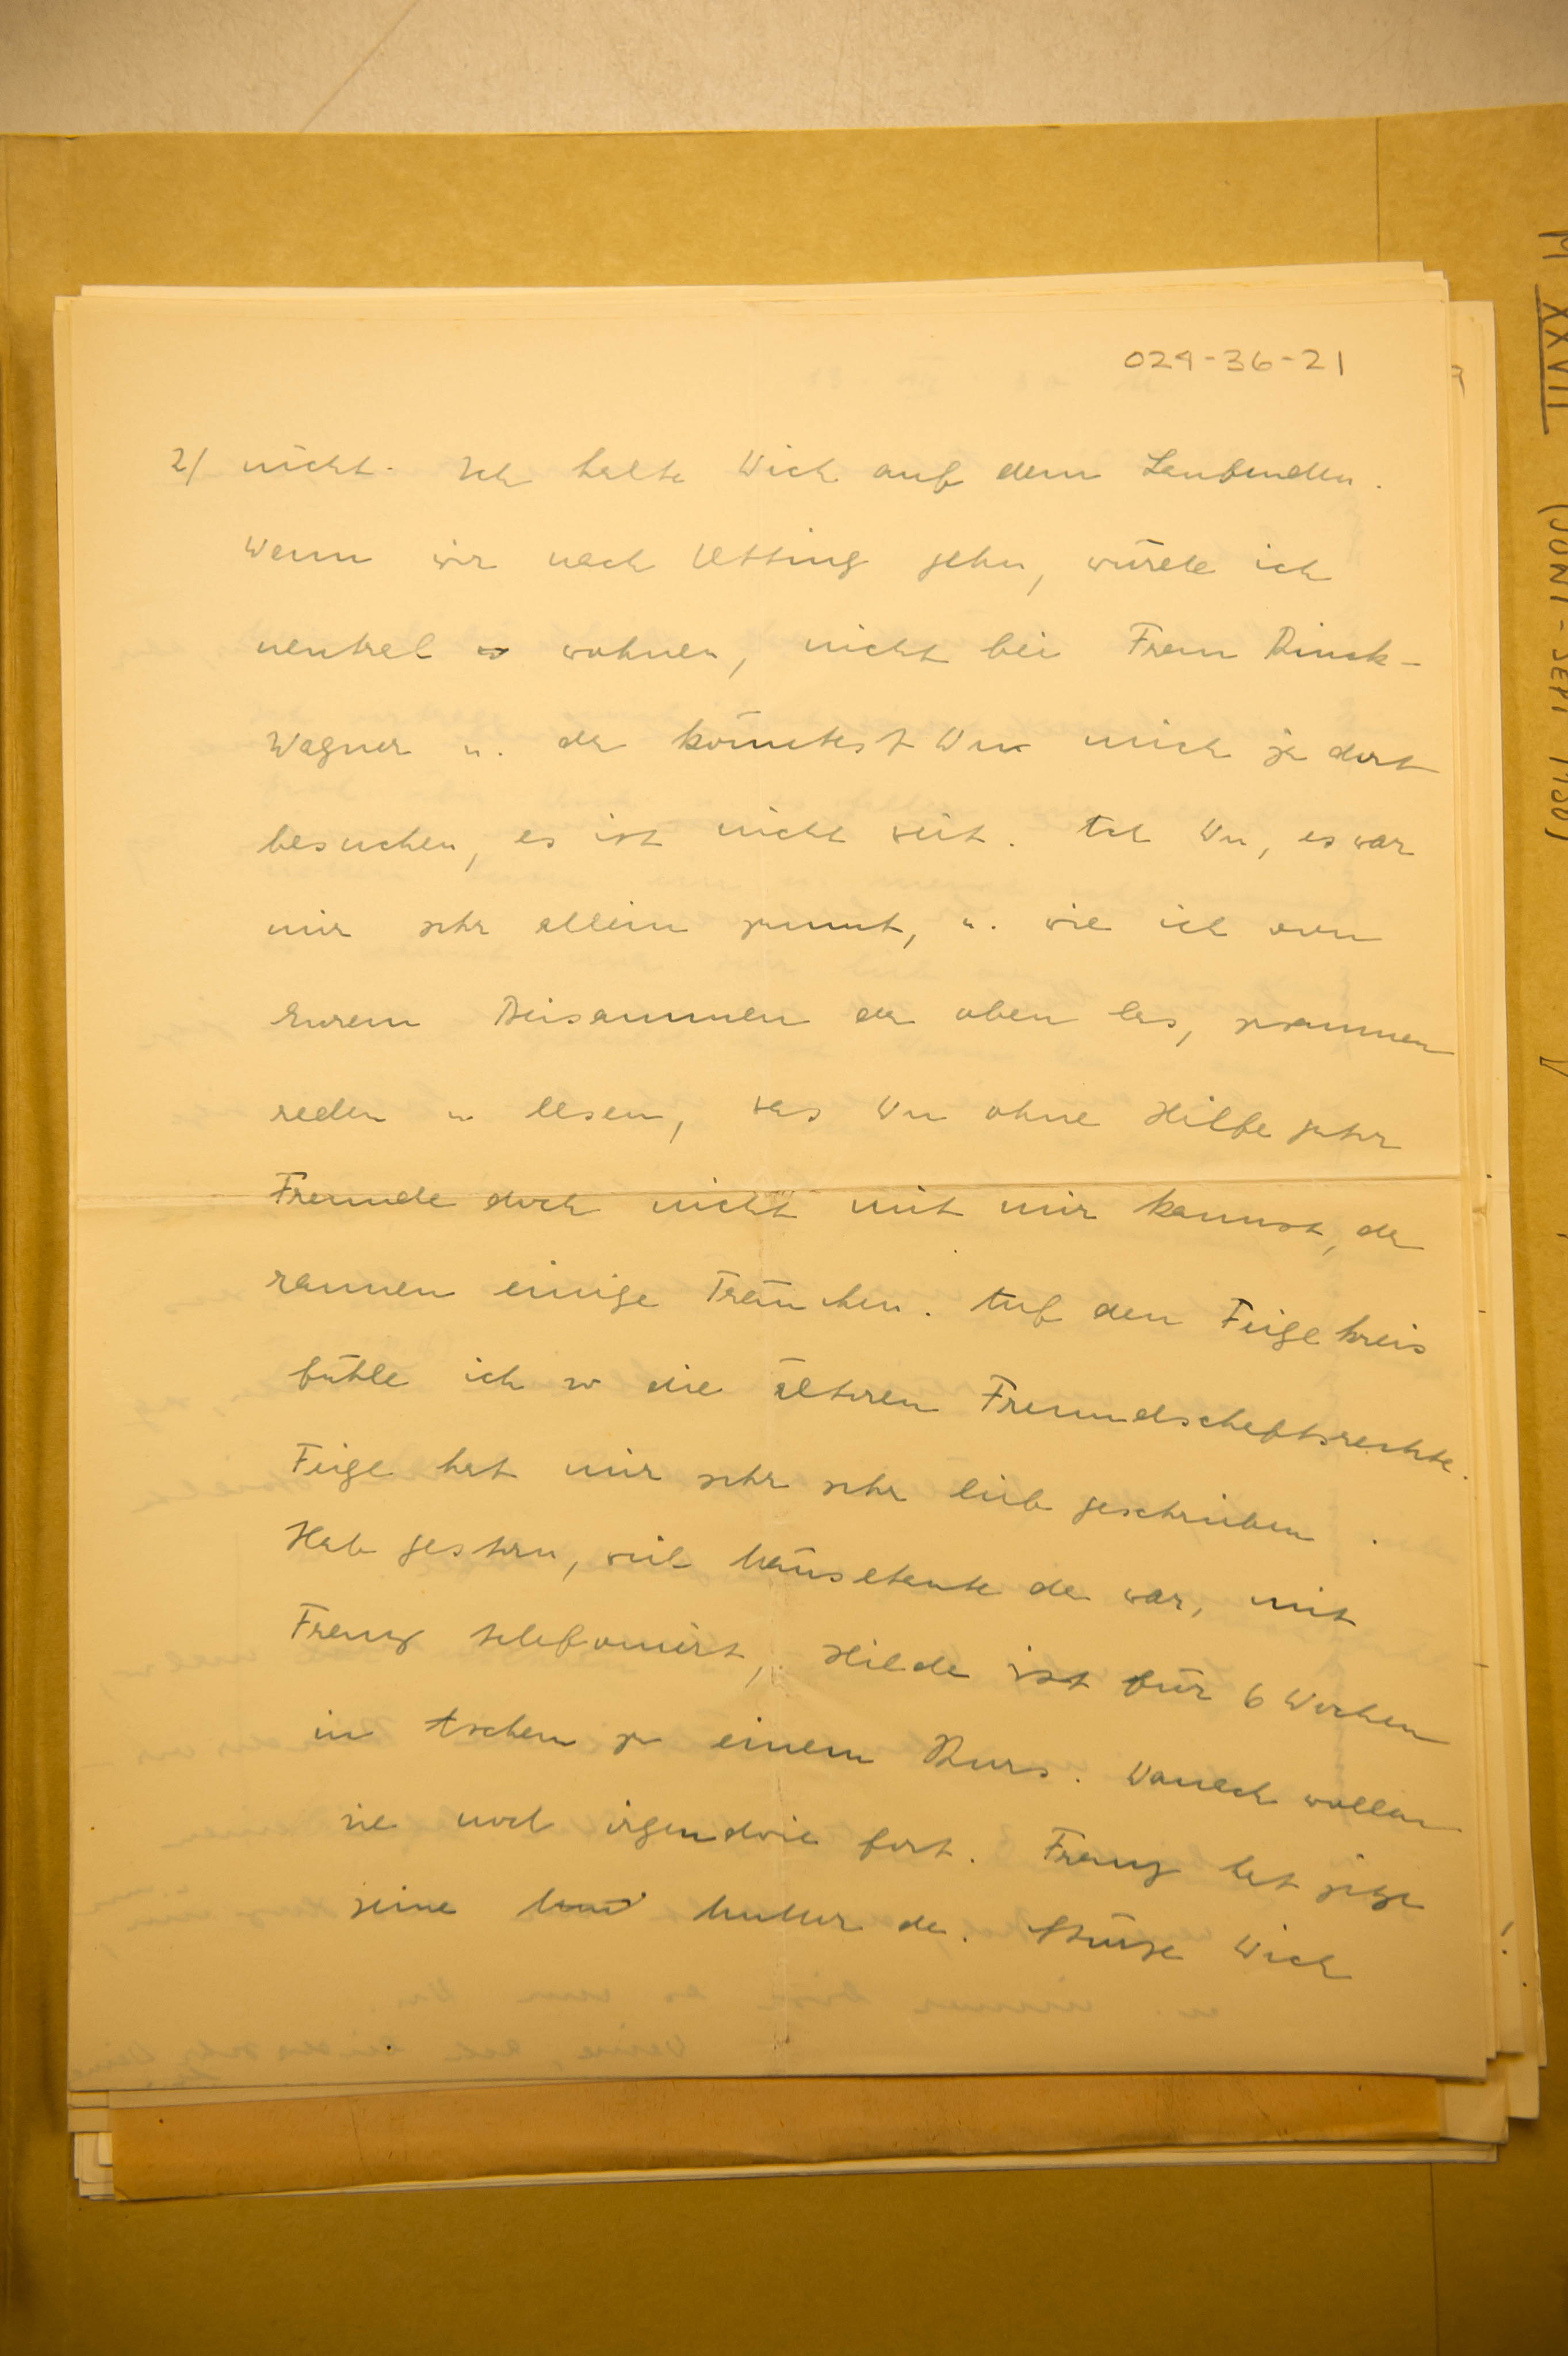 024-36-21
2/ nicht. Ich halte Dich auf dem Laufenden.
Wenn wir nach Utting gehn, würde ich
neutral wohnen, nicht bei Frau Dinck-
Wagner u. da könntest Du mich ja dort
besuchen, es ist nicht weit. Ach Du, es war
mir sehr allein zumut, u. wie ich von
Eurem Beisammen da oben las, zusammen
reden u lesen, was Du ohne Hilfe guter
Freunde doch nicht mit mir kannst, da
rannen einige Tränchen. Auf den Feiglkreis
fühle ich so die älteren Freundschaftsrechte.
Feigl hat mir sehr sehr lieb geschrieben.
Hab gestern, weil Mäusetante da war, mit
Franz telefoniert, Hilde ist für 6 Wochen
in zu einem Kurs. Danach wollen
sie noch irgendwie fort. Franz hat jetzt
seine Mutter da. Stürze Dich
M XXVII (JUNI-SEPT 1938)